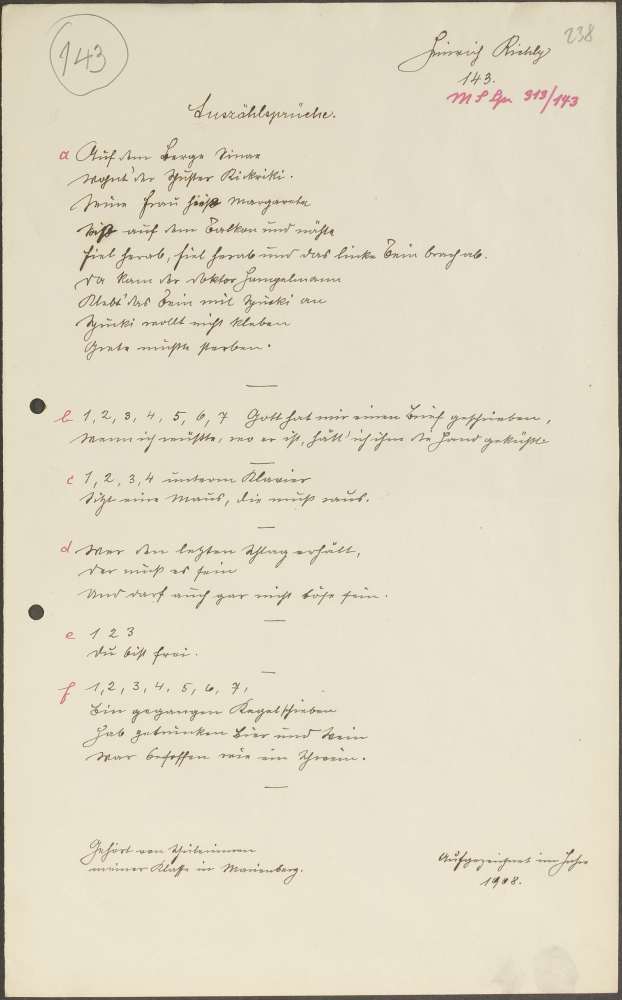 238
143
Heinrich Richly
143.
MS Lpr. 313/143
Auszählsprüche.
a Auf dem Berge Sinae
Wohnt der Schuster Kickriki.
Seine Frau hieß Margareta
Saß auf dem Balkon und nähte
Fiel herab, fiel herab und das linke Bein brach ab.
Da kam der Doktor Hampelmann
Klebt' das Bein mit Spucki an
Spucki wollt nicht kleben
Grete mußte sterben.
b 1, 2, 3, 4, 5, 6, 7 Gott hat mir einen Brief geschrieben,
Wenn ich wüßte, wo er ist, hätt' ich ihm die Hand geküßt
c 1, 2, 3, 4 unterm Klavier
Sitzt eine Maus, die muß raus.
d Wer den letzten Schlag erhält,
Der muß es sein
Und darf auch gar nicht böse sein.
e 1 2 3
Du bist frei.
f 1, 2, 3, 4, 5, 6, 7,
Bin gegangen Kegel schieben
Hab getrunken Bier und Wein
War besoffen wie ein Schwein.
Gehört von Schülerinnen
meiner Klasse in Marienberg.
Aufgezeichnet im Jahre
1908.